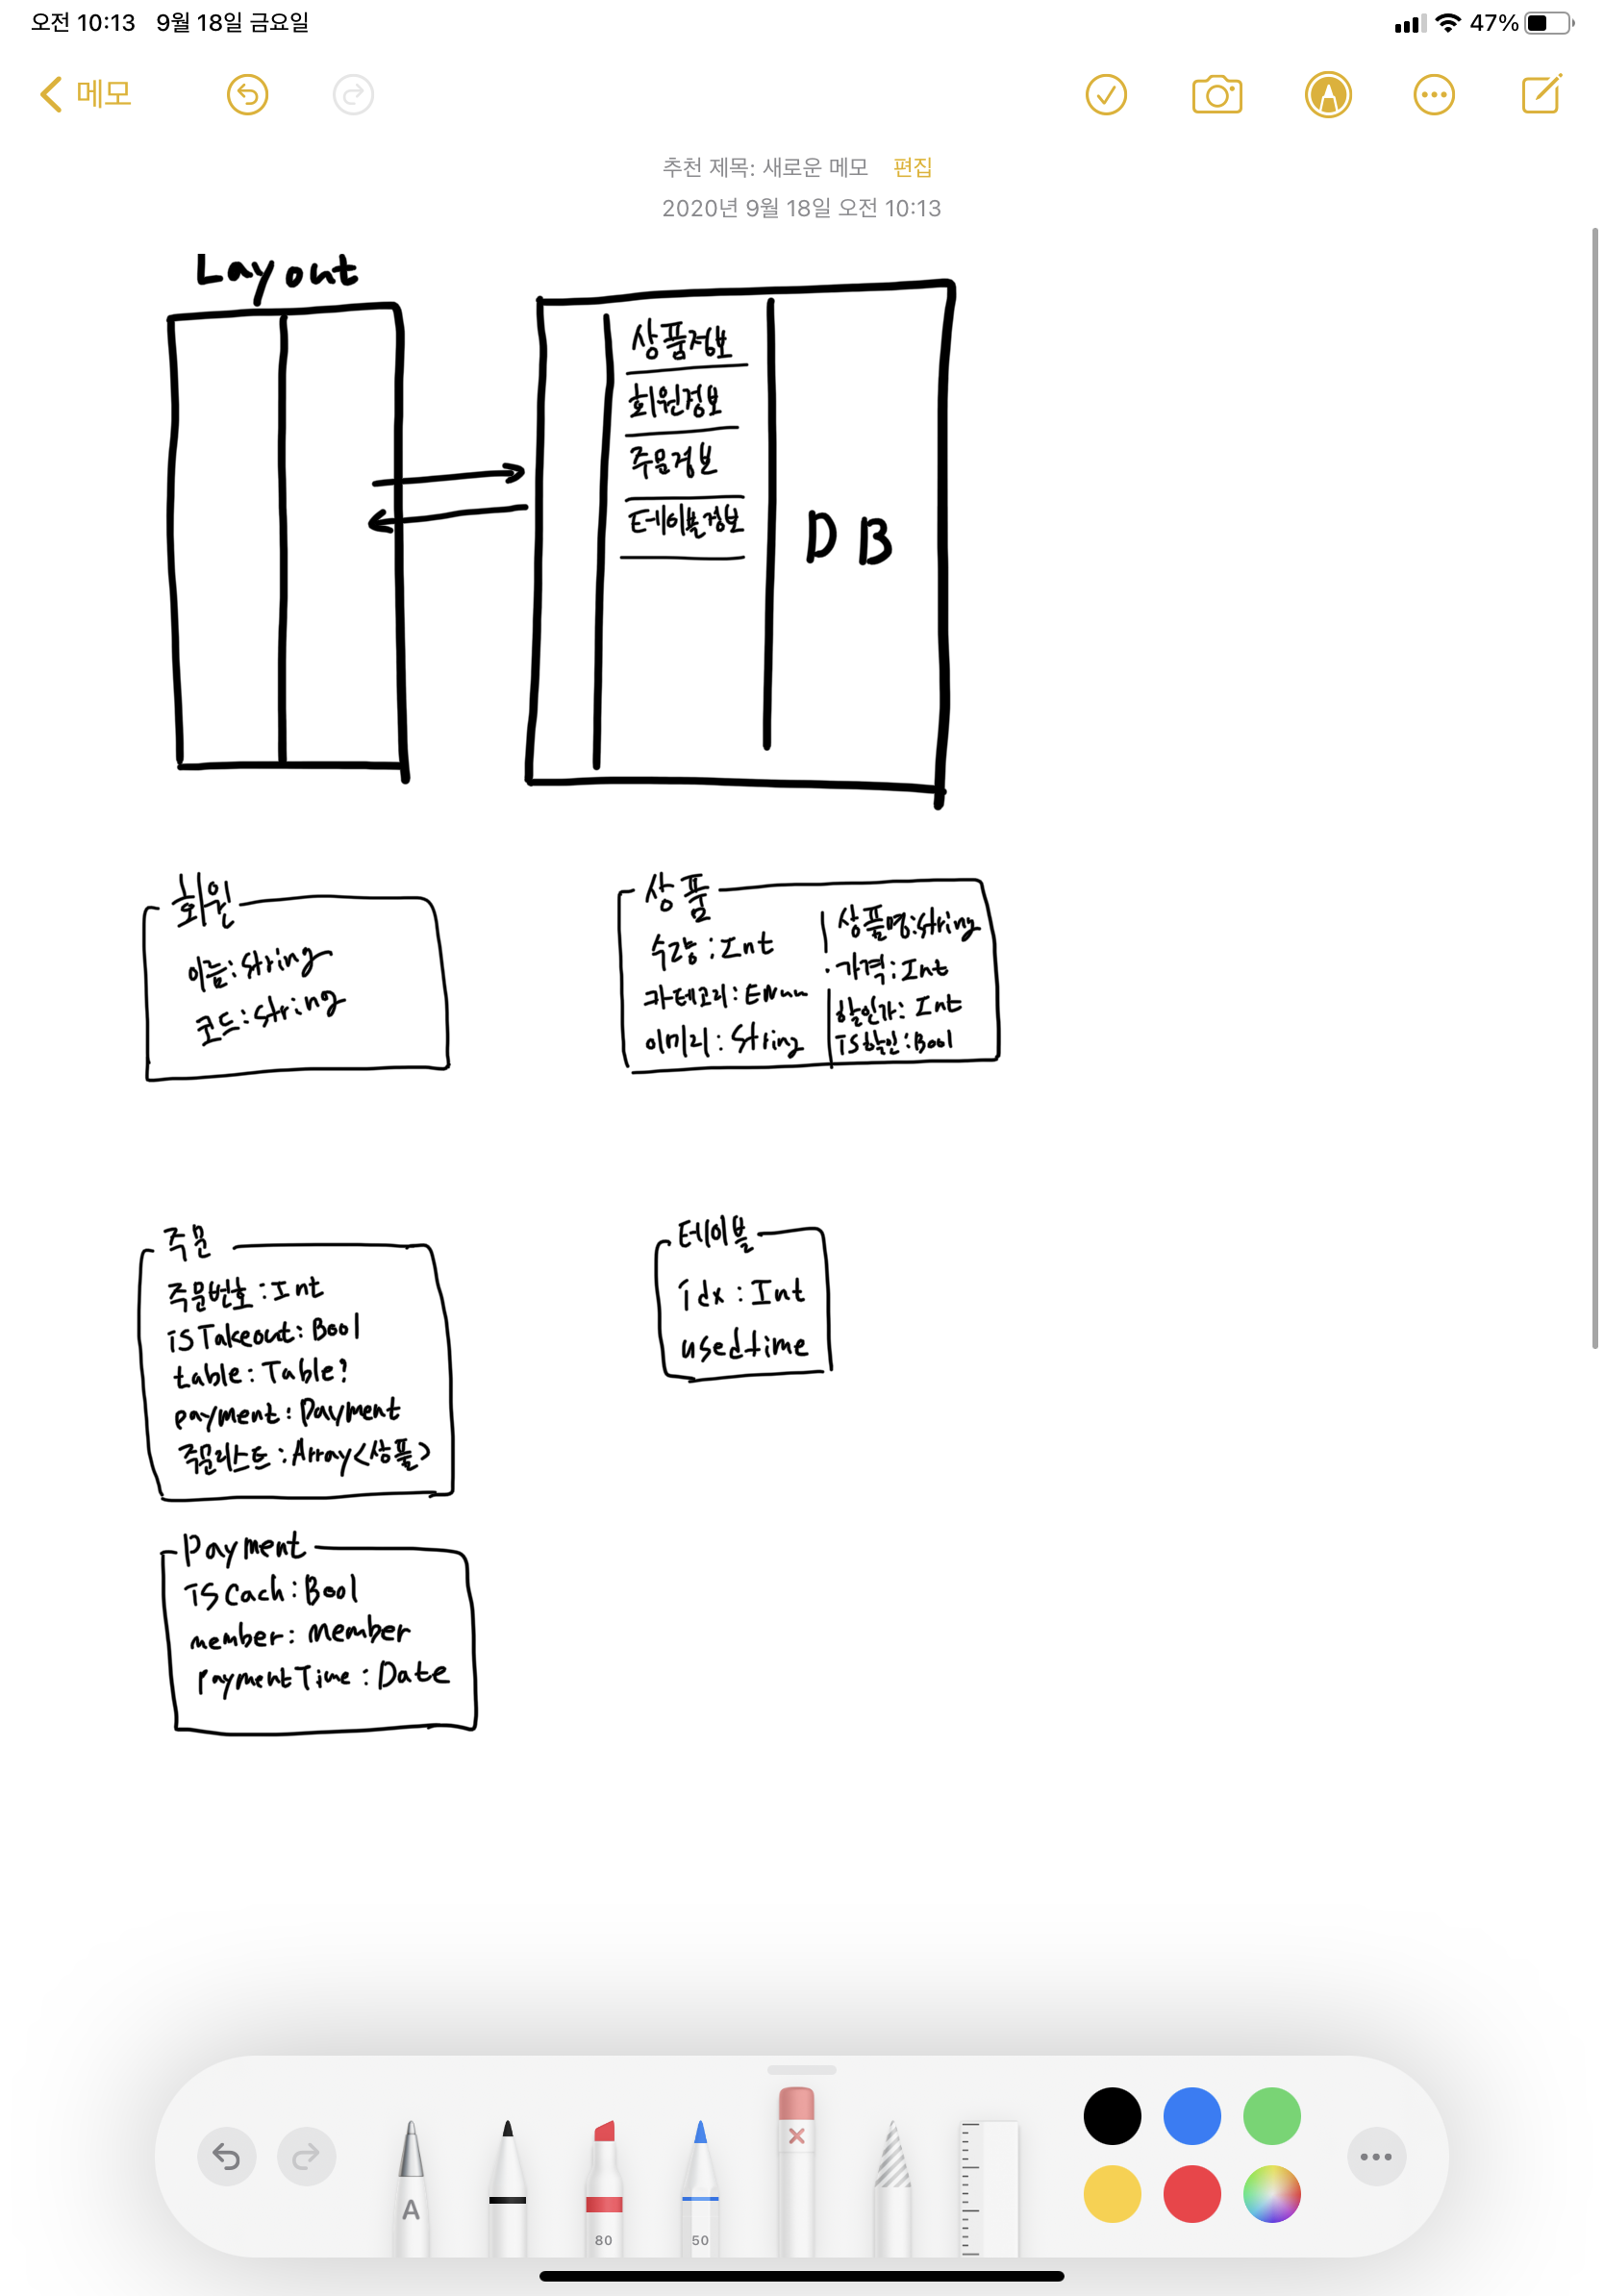 오전 10:13 9월 18일 금요일
47%
메모
추천 제목: 새로운 메모 편집
2020년 9월 18일 오전 10:13
Layout
상품정보
회원정보
주문정보
테이블정보
DB
회원
이름:string
코드:string
상품
수량:Int
카테고리:Enum
이미지:String
상품명:string
가격:Int
할인가:Int
is할인:Bool
주문
주문번호:Int
isTakeout:Bool
table:Table?
payment:Payment
주문리스트:Array<상품>
테이블
idx:Int
usedtime
Payment
isCach:Bool
member:Member
paymentTime:Date
A
80
50